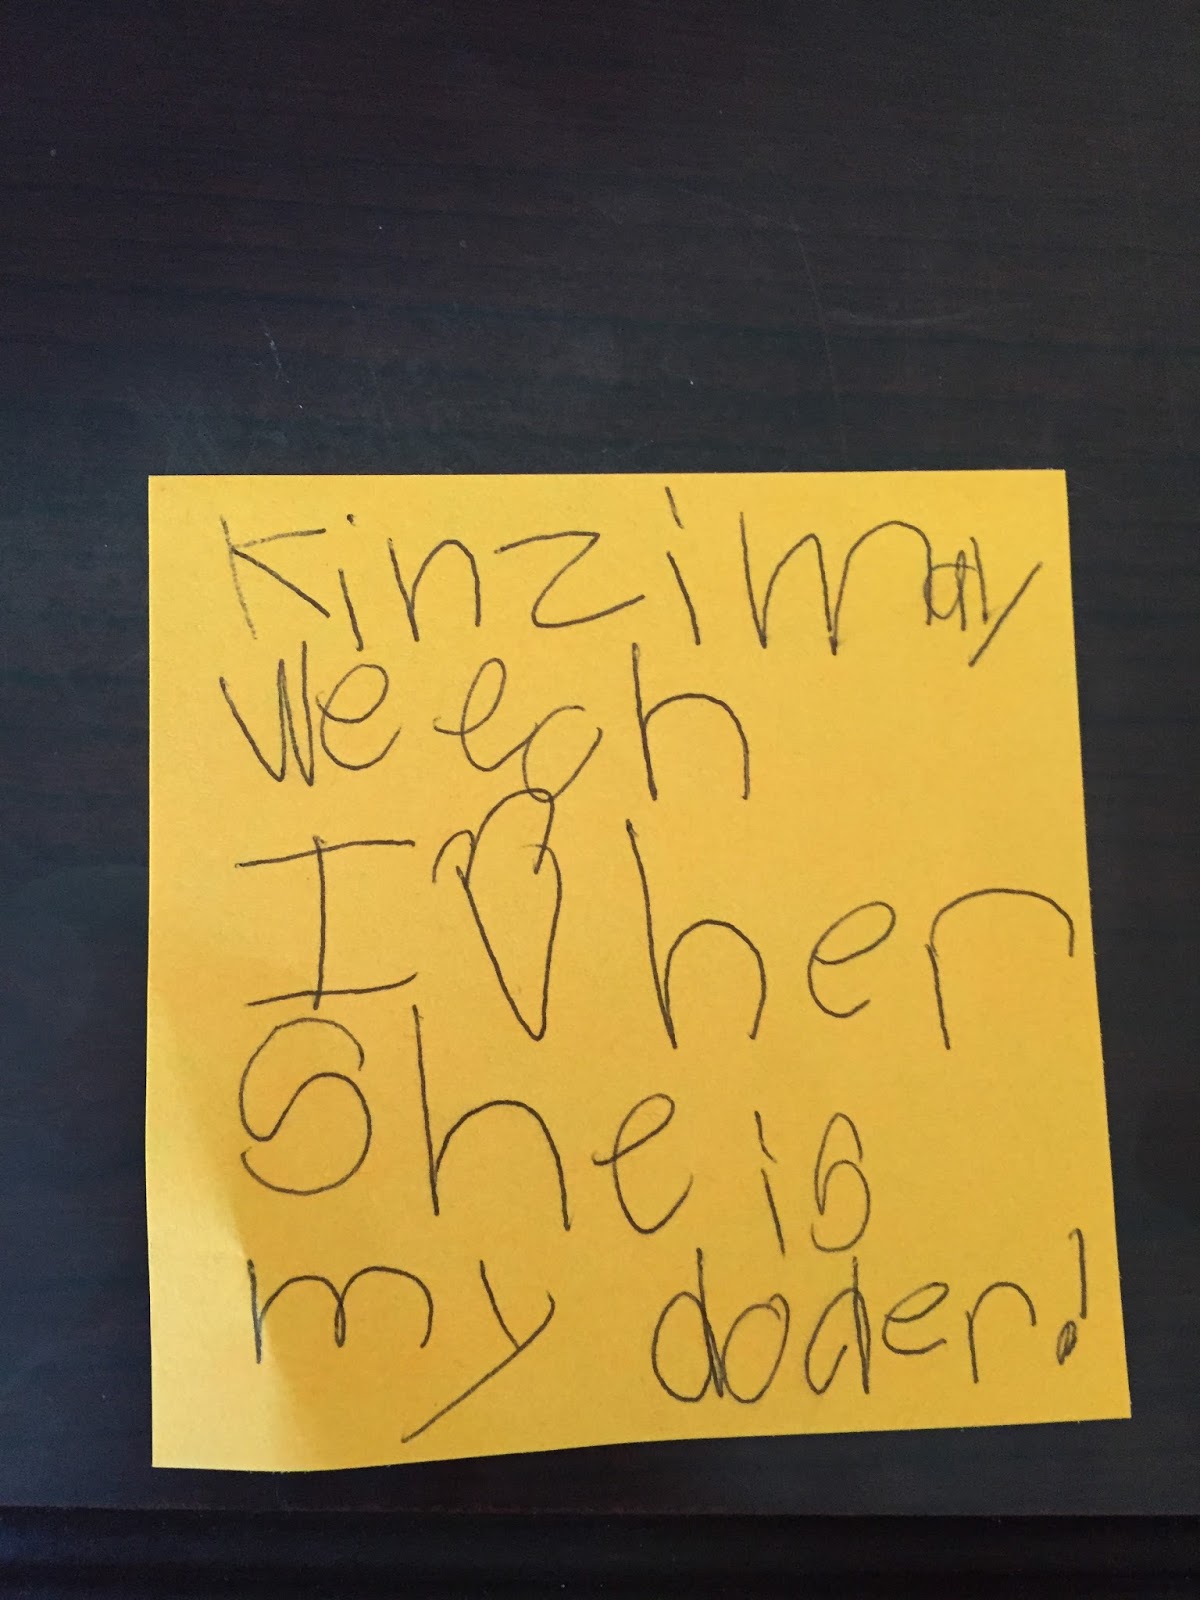 Kinzi May
Weech
I ♡ her
She is
my doder!